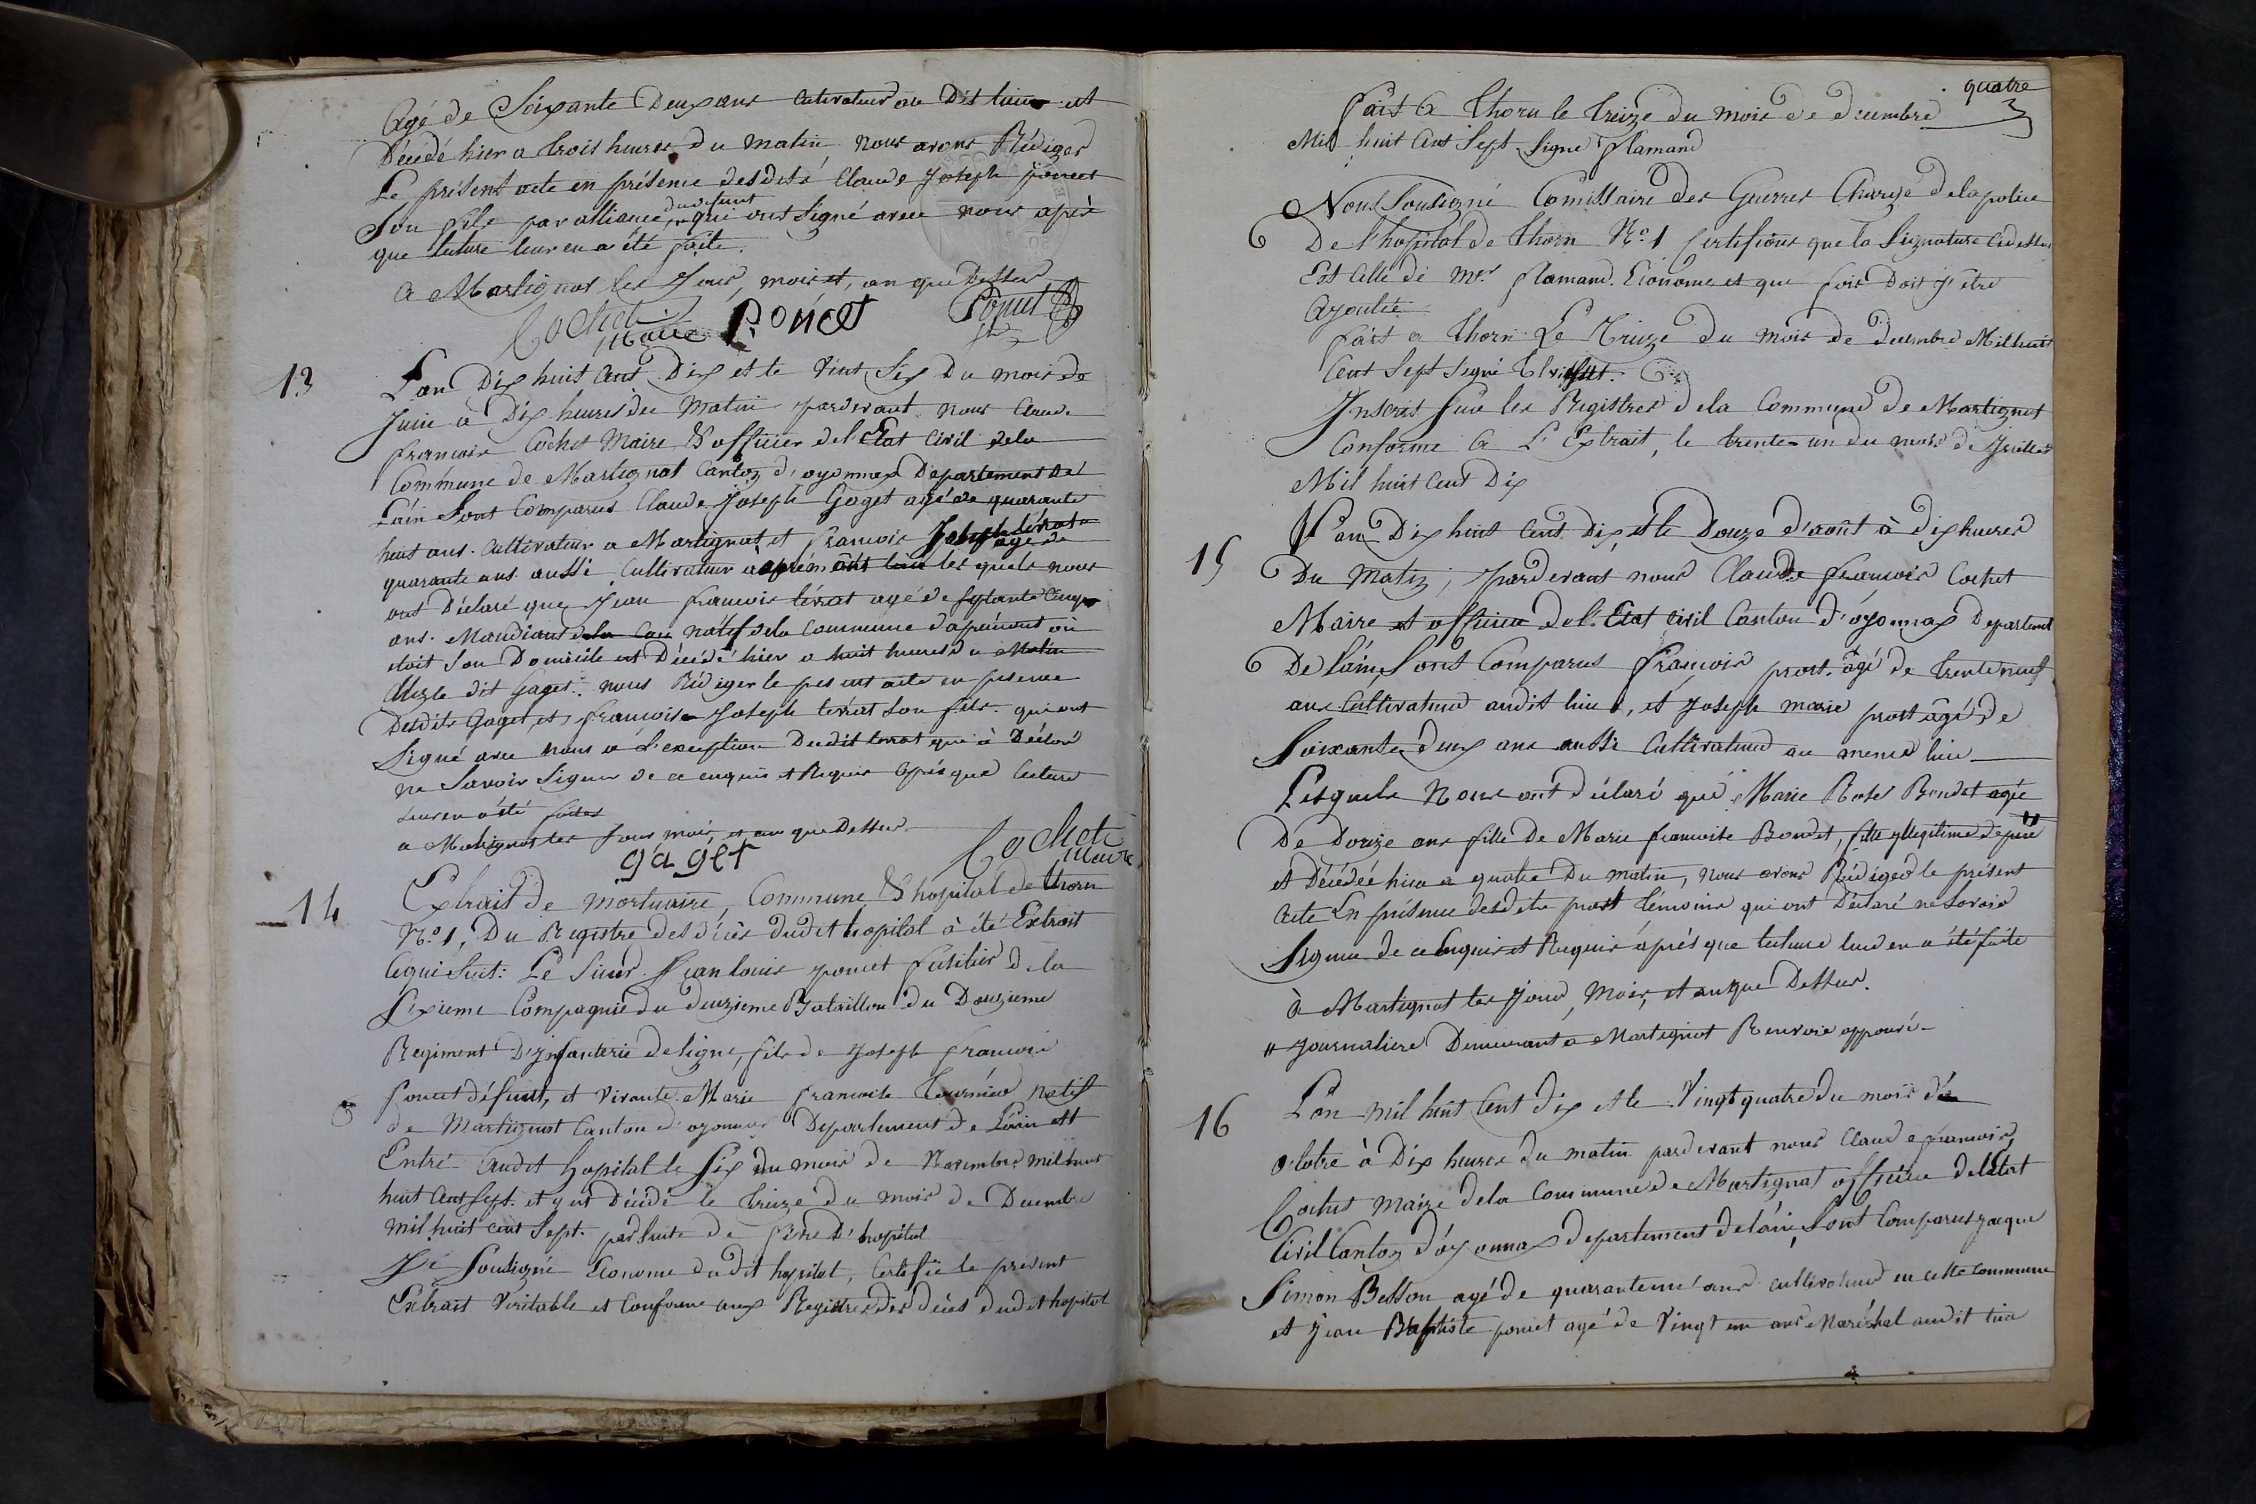 agé de Soixante Deux ans cultivateur au Dis lieu et
Décédé hier a trois heures du matin, nous avons Rédiger
Le présent acte en présence desdits Claude Joseph poncet
du defunt
Son fils par alliance, qui ont signé avec nous après
que lecture leur en a été faite.
a Martignat les Jour, mois et, an que Dessus
Cochet Maire Poncet Poncet
13
L'an Dix huit Cent Dix et le vint Six Du mois de
Juin a Dix heures du Matin pardevant nous Claude
françois Cochet Maire & officier de l'Etat Civil dela
Commune de Martignat Canton d'oyonnax Département De
L'ain Sont Comparus Claude Joseph Goget agé de quarante
huit ans. Cultivateur a Martignat et francois Joseph levrat agé de
quarante ans aussi Cultivateur a apremont lieu les quels nous
ont Déclaré que Jean francois levrat agé de septante Cinq
ans. Mandiant natif dela Commune d'apremont où
etoit Son Domicile est Décédé hier a huit heures du Matin
Chez le dit Gaget. nous Rédiger le present acte en presence
Desdits Gaget, et francois Joseph levrat Son fils. qui ont
Signé avec nous a l'exception Dudit levrat qui à Déclaré
ne Savoir Signer de ce enquis et Requis après que lecture
leur en a été faites
a Martignat les Jour mois, et an que Dessus
gaget Cochet Maire
14
Extrait de mortuaire, Commune & hopital de thorn
N.o 1, Du Registre des décès dudit hopital à été Extrait
ce qui Suit: Le Sieur Jean louis poncet fusilier de la
Sixieme Compagnie du deuzieme Bataillon du Douzieme
Regiment D'Infanterie de ligne, fils de Joseph francois
poncet défunt, et vivante Marie francoise Tournier Natif
de Martignat Canton d'oyonnax Département de L'ain est
Entré audit hopital le Six du mois de Novembre mil huit
huit Cent Sept. et y est Décédé le treize du mois de Decembre
mil huit cent Sept. par Suite de fievre D'hopital
Je Soussigné Econome dudit hopital, Certifie le present
Extrait Veritable et Conforme aux Registres des décès dudit hopital
quatre
fait a Thorn le treize du mois de decembre
Mil huit Cent Sept Signé flamand
Nous Soussigné Comissaire des Guerres Charge de la police
De l'hopital de Thorn N.o 1 Certifions que la Signature Cidessus
Est Celle de Mr. flamand. Econome et que foie Doit y être
ajoutée
fait a Thorn Le Treize du mois de decembre Mil huit
Cent Sept Signé
Inscrit Sur les Registres dela Commune de Martignat
Conforme a L'Extrait, le trente-un du mois de Juillet
Mil huit Cent Dix
15
L'an Dix huit Cent Dix et le Douze d'août à dix heures
Du Matin, pardevant nous Claude francois Cochet
Maire et officier de l'Etat Civil Canton d'oyonnax Departement
De l'ain Sont Comparus francois prost. âgé de trente neuf
ans Cultivateur audit lieu, et Joseph marie prost âgé de
Soixante deux ans aussi Cultivateur au meme lieu
Lesquels Nous ont déclaré que Marie Rose Bondet agée
De Douze ans fille de Marie francoise Bondet, fille yllegitime de pere "
et Décédée hier a quatre Du matin, nous avons Rédiger le présent
acte En présence desdits prost témoins qui ont Déclaré ne Savoir
Signer de ce Enquis et Requis après que lecture leur en a été faite
à Martignat les Jour, Mois, et an que Dessus.
" Journaliere Demeurant a Martignat Renvoie approuvé-
16
L'an mil huit Cent dix et le Vingt quatre du mois d'
octobre à Dix heures du matin pardevant nous Claude francois
Cochet Maire dela Commune de Martignat officier de l'Etat
Civil Canton d'oyonnax departement de l'ain, Sont Comparus Jacque
Simon Besson agé de quaranteun ans cultivateur en cette Commune
et Jean Baptiste poncet agé de Vingt un ans Maréchal audit lieu